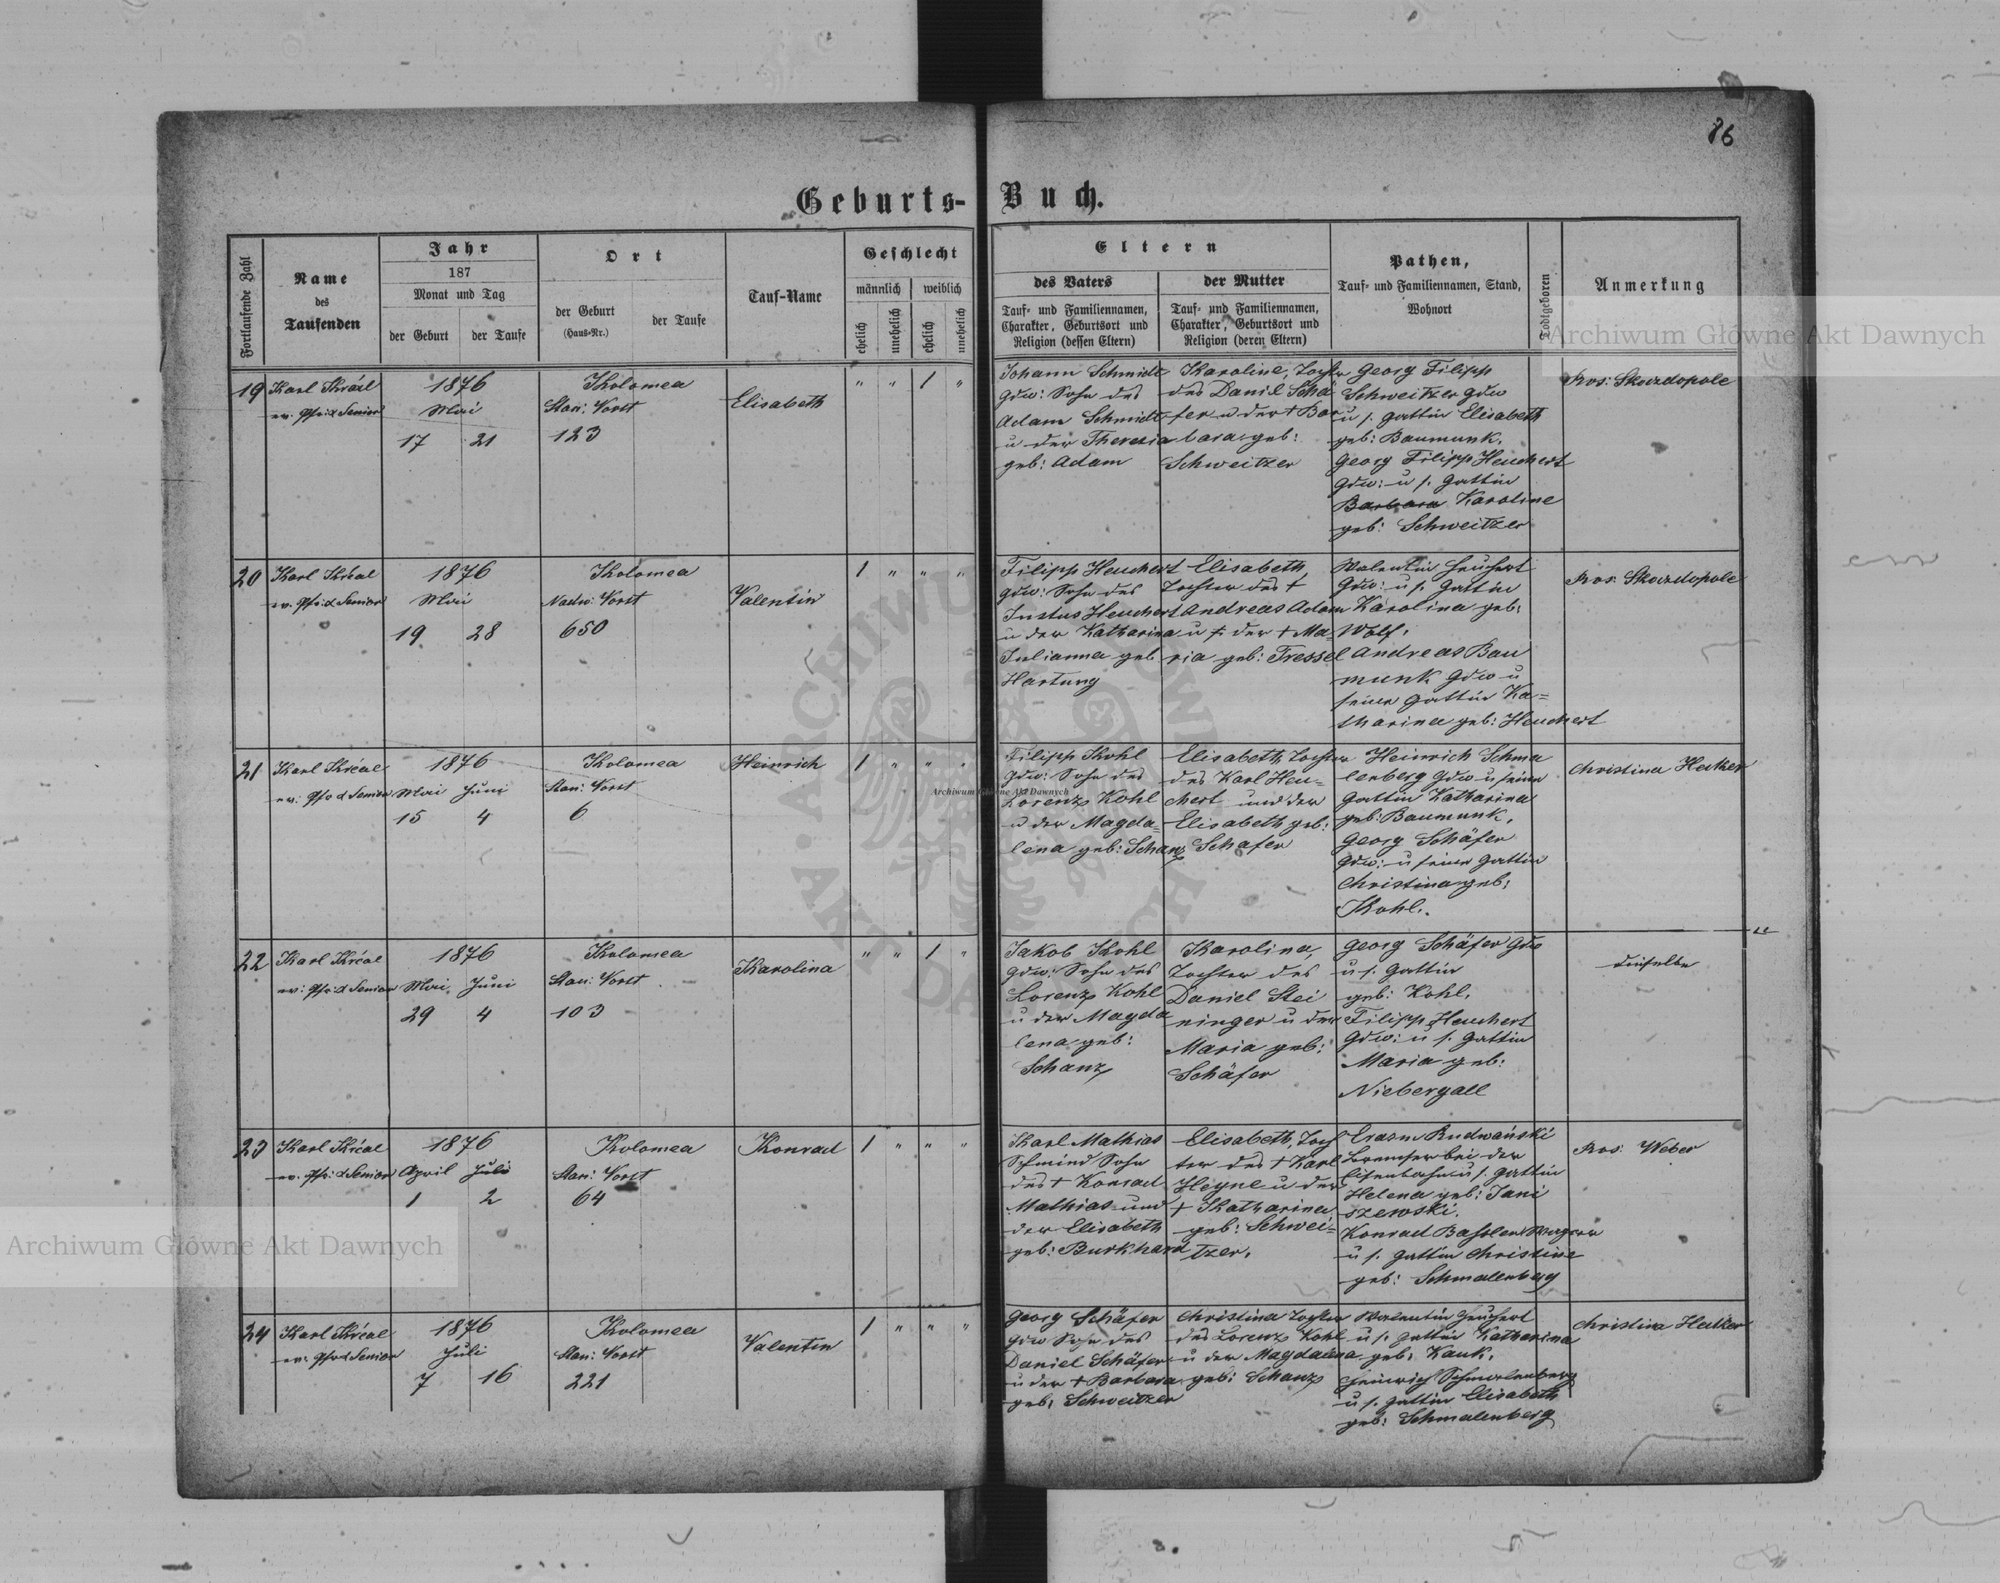 86
Geburts-Buch.
Fortlaufende Zahl
Name
des
Taufenden
Jahr
187
Monat und Tag
der Geburt
der Taufe
Ort
der Geburt
(Haus-Nr.)
der Taufe
Tauf-Name
Geschlecht
männlich
weiblich
ehelich
unehelich
ehelich
unehelich
Eltern
des Vaters
Tauf- und Familiennamen,
Charakter, Geburtsort und
Religion (dessen Eltern)
der Mutter
Tauf- und Familiennamen,
Charakter, Geburtsort und
Religion (deren Eltern)
Pathen,
Tauf- und Familiennamen, Stand,
Wohnort
Todtgeboren
Anmerkung
Archiwum Główne Akt Dawnych
19
Karl
ev: Pfr: d Senior
1876
Mai
17
21
Kolomea
Stan: Vorst
123
Elisabeth
" " 1 "
Johann Schmidt
Gdw: Sohn des
Adam Schmidt
u der Theresia
geb: Adam
Karoline, Tochter
des Daniel Schä
fer u der † Bar
bara geb:
Schweitzer
Georg Filipp
Schweitzer Gdw
u s. Gattin Elisabeth
geb: Baumunk.
Georg Filipp Heuchert
Gdw: u s. Gattin
Barbara Karoline
geb: Schweitzer
Ros: Skordopole
20
Karl
ev: Pfr: d Senior
1876
Mai
19
28
Kolomea
Nadw: Vorst
650
Valentin
1 " " "
Filipp Heuchert
Gdw: Sohn des
Justus Heuchert
u der Katharina
Julianna geb
Hartung
Elisabeth,
Tochter des †
Andreas Adam
u s: der † Ma-
ria geb: Tressel
Valentin Heuchert
Gdw: u s. Gattin
Karolina geb:
Wolf.
Andreas Bau
munk Gdw u
seine Gattin Ka-
tharina geb: Heuchert
Ros: Skordopole
21
Karl
ev: Pfr d Senior
1876
Mai
Juni
15
4
Kolomea
Stan: Vorst
6
Heinrich
1 " " "
Filipp Kohl
Gdw: Sohn des
Lorenz Kohl
u der Magda-
lena geb: Schanz
Elisabeth, Tochter
des Karl Heu-
chert und der
Elisabeth geb:
Schafer
Heinrich Schma
lenberg Gdw u seine
Gattin Katharina
geb: Baumunk,
Georg Schäfer
Gdw: u seine Gattin
Christina geb:
Kohl.
Christina
Archiwum Główne Akt Dawnych
22
Karl
ev: Pfr: d Senior
1876
Mai
Juni
29
4
Kolomea
Stan: Vorst
103
Karolina
" " 1 "
Jakob Kohl
Gdw: Sohn des
Lorenz Kohl
u der Magda
lena geb:
Schanz
Karolina,
Tochter des
Daniel Stei
ninger u der
Maria geb:
Schäfer
Georg Schäfer Gdw
u s. Gattin
geb: Kohl.
Filipp Heuchert
Gdw: u s. Gattin
Maria geb:
Niebergall
dieselbe
23
Karl
ev: Pfr: d Senior
1876
April
Juli
1
2
Kolomea
Stan: Vorst
64
Konrad
1 " " "
Karl Mathias
Schmied Sohn
des † Konrad
Mathias und
der Elisabeth
geb: Burkhard
Elisabeth, Toch
ter des † Karl
Heyne u der
† Katharina
geb: Schwei-
tzer.
Erasm Rudwański
Bremser bei der
Eisenbahn u s. Gattin
Helena geb: Jani
szewski.
Konrad Wagner
u s. Gattin Christine
geb: Schmalenberg
Ros: Weber
24
Karl
ev: Pfr d Senior
1876
Juli
7
16
Kolomea
Stan: Vorst
221
Valentin
1 " " "
Georg Schäfer
Gdw Sohn des
Daniel Schäfer
u der † Barbara
geb: Schweitzer
Christina Tochter
des Lorenz Kohl
u der Magdalena
geb: Schanz
Valentin Heuchert
u s. Gattin Katharina
geb: Kauk.
Heinrich Schmalenberg
u s. Gattin Elisabeth
geb: Schmalenberg
Christina
Archiwum Główne Akt Dawnych